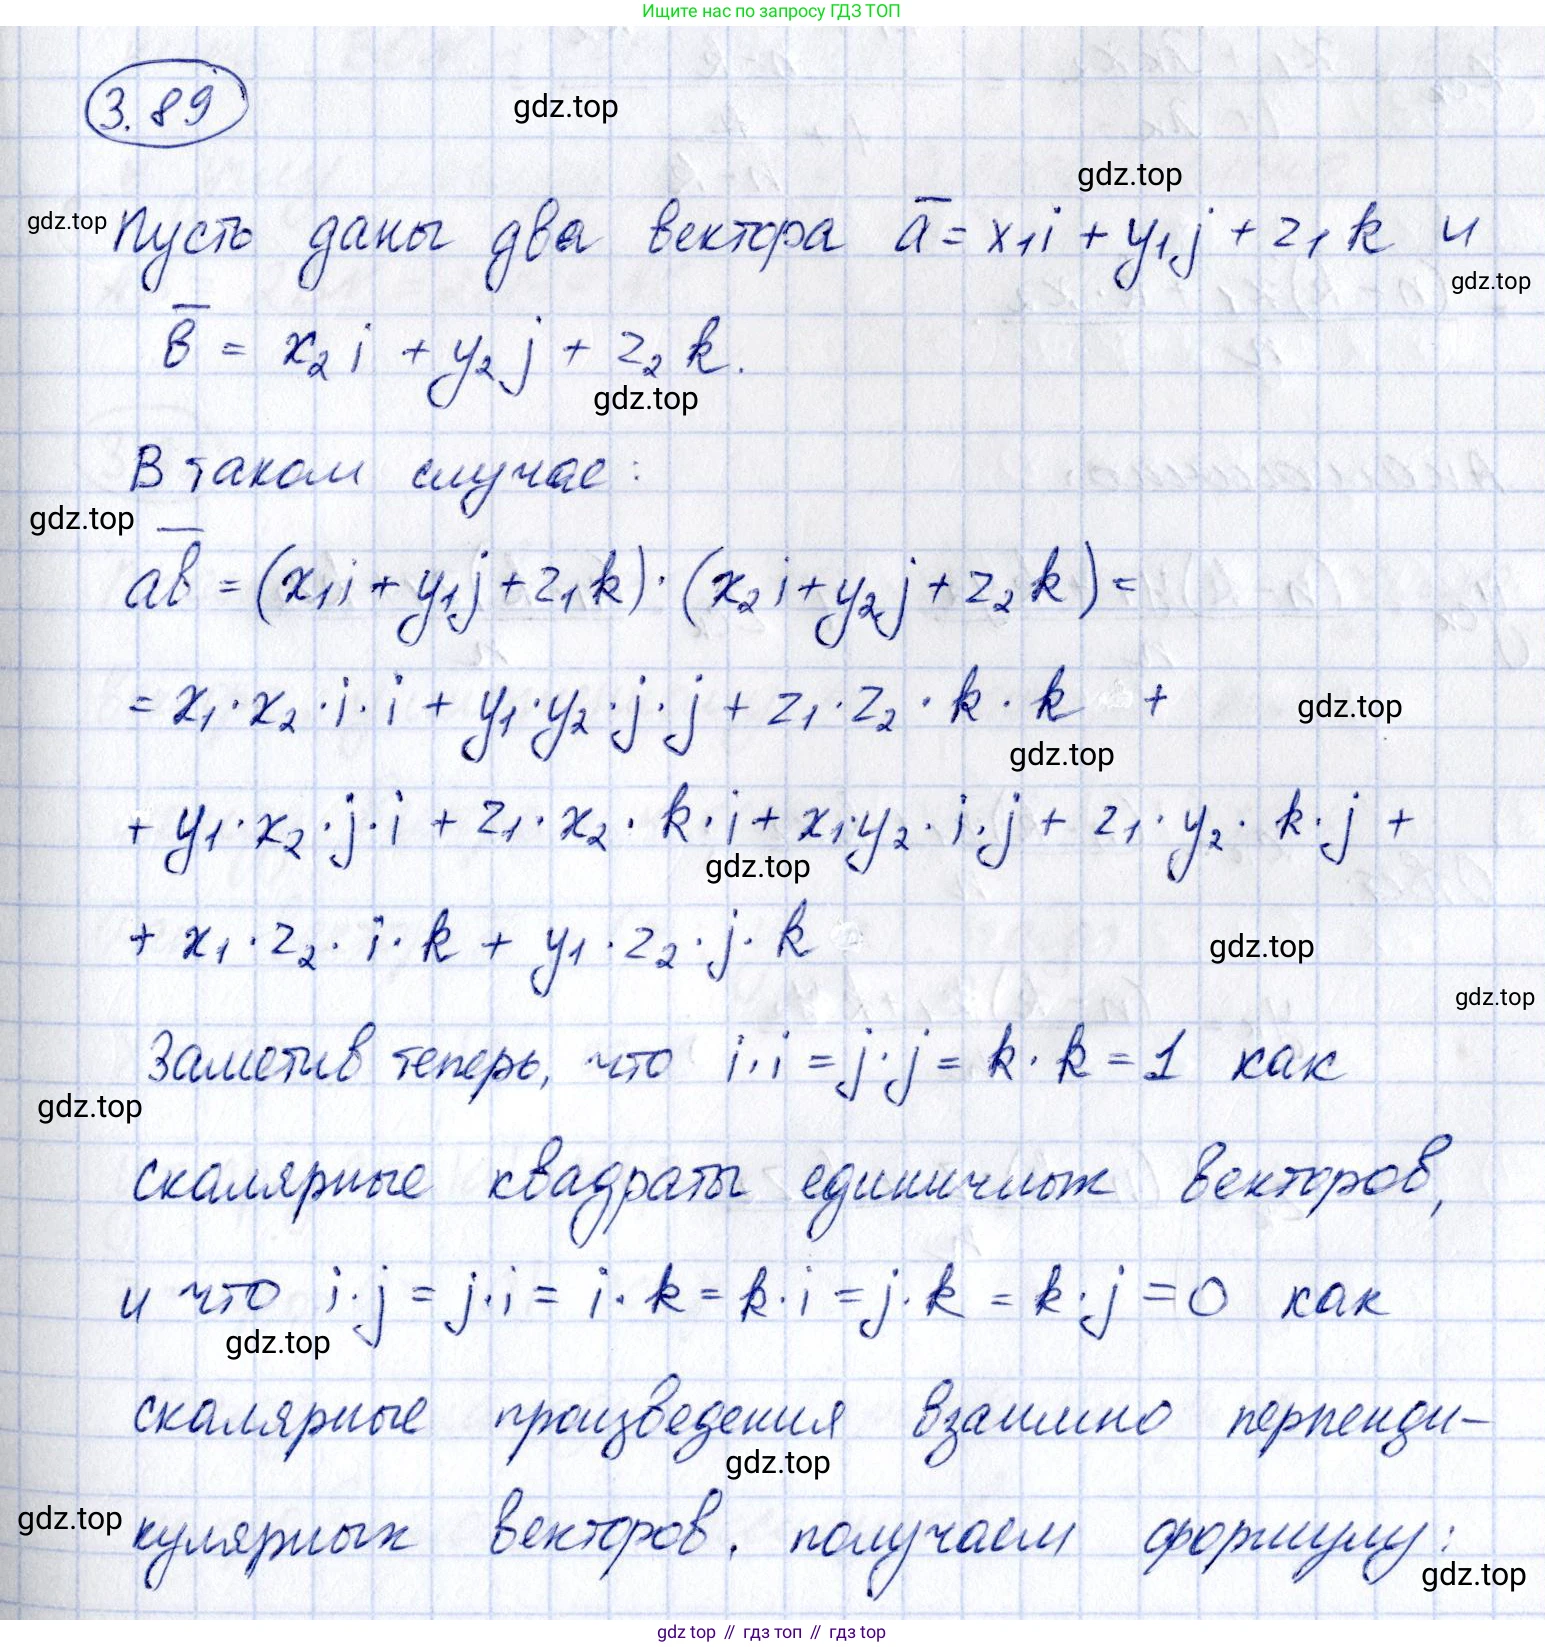 Ищите нас по запросу ГДЗ ТОП
3.89
gdz.top
gdz.top
gdz.top
Пусть даны два вектора a̅ = x₁i + y₁j + z₁k и
gdz.top
b̅ = x₂i + y₂j + z₂k.
gdz.top
В таком случае:
gdz.top
a̅b̅ = (x₁i + y₁j + z₁k)·(x₂i + y₂j + z₂k) =
= x₁·x₂·i·i + y₁·y₂·j·j + z₁·z₂·k·k +
gdz.top
gdz.top
+ y₁·x₂·j·i + z₁·x₂·k·i + x₁·y₂·i·j + z₁·y₂·k·j +
gdz.top
+ x₁·z₂·i·k + y₁·z₂·j·k
gdz.top
gdz.top
Заметив теперь, что i·i = j·j = k·k = 1 как
gdz.top
скалярные квадраты единичных векторов,
и что i·j = j·i = i·k = k·i = j·k = k·j = 0 как
gdz.top
скалярные произведения взаимно перпенди-
gdz.top
gdz.top
кулярных векторов, получаем формулу:
gdz.top
gdz top // гдз топ // гдз top